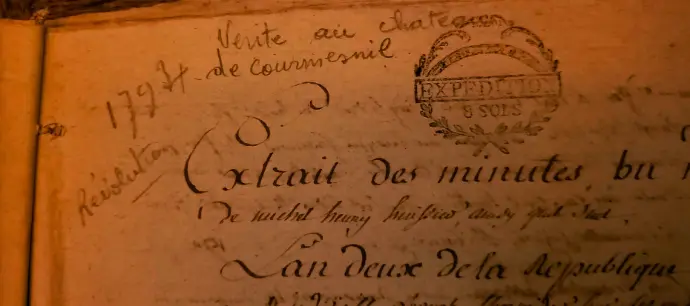 Vente au chateau
de Courmesnil
1794
Révolution
EXPEDITION
8 SOLS
Extrait des minutes du
de michel henry huissier ainsy quil suit.
L'an deux de la Republique